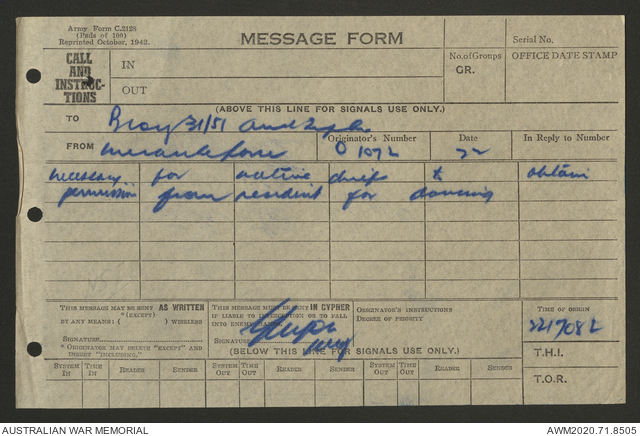 Army Form C.2128
(Pads of 100)
Reprinted October, 1942.
MESSAGE FORM
Serial No.
CALL AND INSTRUC-TIONS
IN
OUT
No. of Groups
GR.
OFFICE DATE STAMP
(ABOVE THIS LINE FOR SIGNALS USE ONLY.)
TO 31/51
FROM
Originator's Number
O 1072
Date
22
In Reply to Number
necessary for native chief to obtain
permission from resident for dancing
THIS MESSAGE MAY BE SENT AS WRITTEN
*(EXCEPT)
BY ANY MEANS: ( ) WIRELESS
SIGNATURE
*ORIGINATOR MAY DELETE "EXCEPT" AND
INSERT "INCLUDING."
THIS MESSAGE MUST BE SENT IN CYPHER
IF LIABLE TO INTERCEPTION OR TO FALL
INTO ENEMY
SIGNATURE
ORIGINATOR'S INSTRUCTIONS
DEGREE OF PRIORITY
TIME OF ORIGIN
221708 L
(BELOW THIS LINE FOR SIGNALS USE ONLY.)
T.H.I.
T.O.R.
SYSTEM IN
TIME IN
READER
SENDER
SYSTEM OUT
TIME OUT
READER
SENDER
SYSTEM OUT
TIME OUT
READER
SENDER
AUSTRALIAN WAR MEMORIAL
AWM2020.71.8505